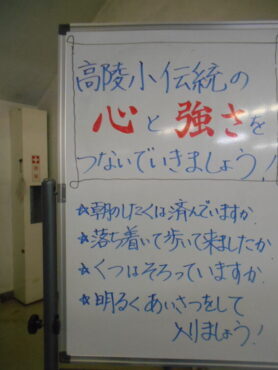 高陵小伝統の
心と強さを
つないでいきましょう!
☆朝のしたくは済んでいますか
☆落ち着いて歩いて来ましたか
☆くつはそろっていますか
☆明るくあいさつをして
入りましょう!